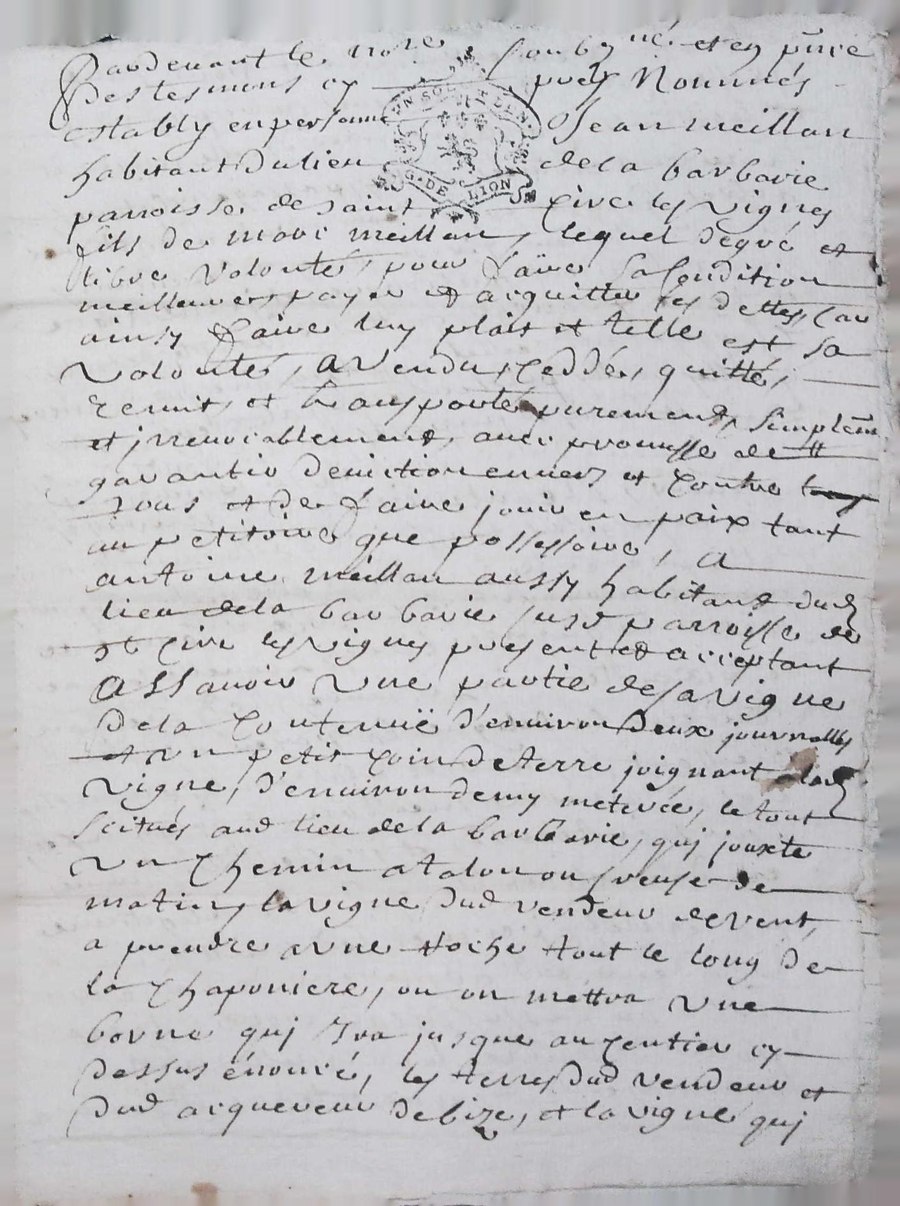 Pardevant le no.re soubz.né et en p.nce
des tesmoins cy pres Nommés
estably en personne Jean meillan
habitant du lieu de la barbarie
UN SOL
G. DE LION
parroisse de saint Cire les vignes
fils de marc meillan, lequel de gré et
libre volonté, pour faire sa Condition
meilleure payer et acquitter ses dettes, Car
ainsy faire luy plait et telle est sa
volonté, a vendu, Ceddé, quitté,
remit, et transporté purement, simplem.t
et jrrevocablement, avec promesse de
garantir deviction envers et Contre
tous et de faire jouir en paix tant
au petitoire que possessoire, A
antoine meillan aussy habitant dud
lieu de la barbarie susd parroisse de
st Cire les vignes present et acceptant
Assavoir une partie de sa vigne
de la Contenuë d'environ deux journallés
et un petit Coin de terre joignant a lad
vigne, d'environ demy meterée, le tout
scitués aud lieu de la barbarie, qui jouxte
un Chemin a talon ou de
matin, la vigne dud vendeur de vent,
a prendre une toche tout le long de
la Chaponiere, ou on mettra une
borne qui Ira jusque au Centier cy
dessus énoncé, les terres dud vendeur et
dud acquereur de bize, et la vigne qui